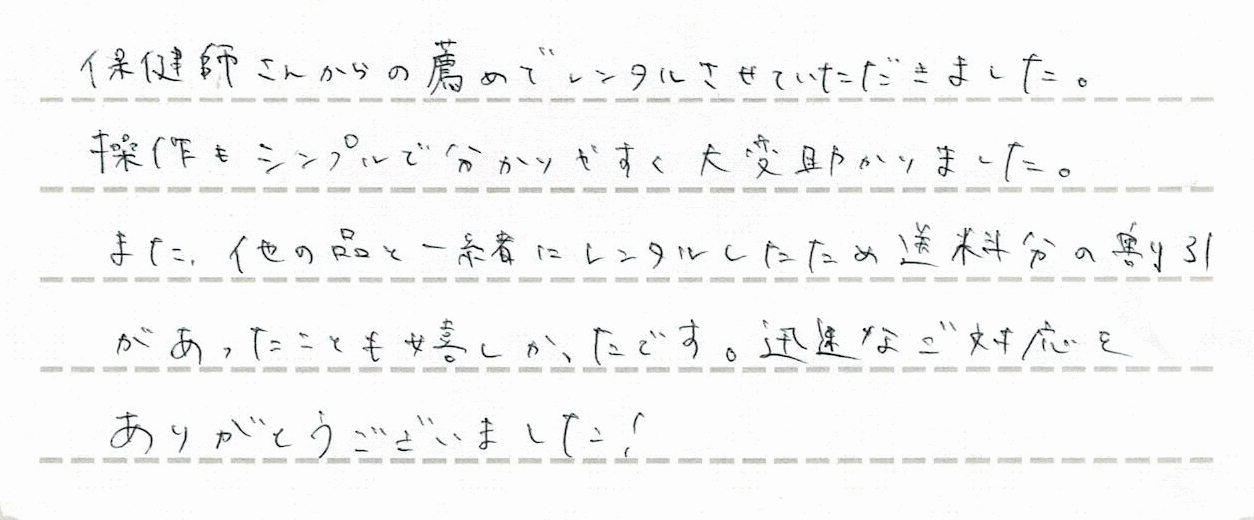 保健師さんからの薦めでレンタルさせていただきました。
操作もシンプルで分かりやすく大変助かりました。
また、他の品と一緒にレンタルしたため送料分の割り引
があったことも嬉しかったです。迅速なご対応を
ありがとうございました!